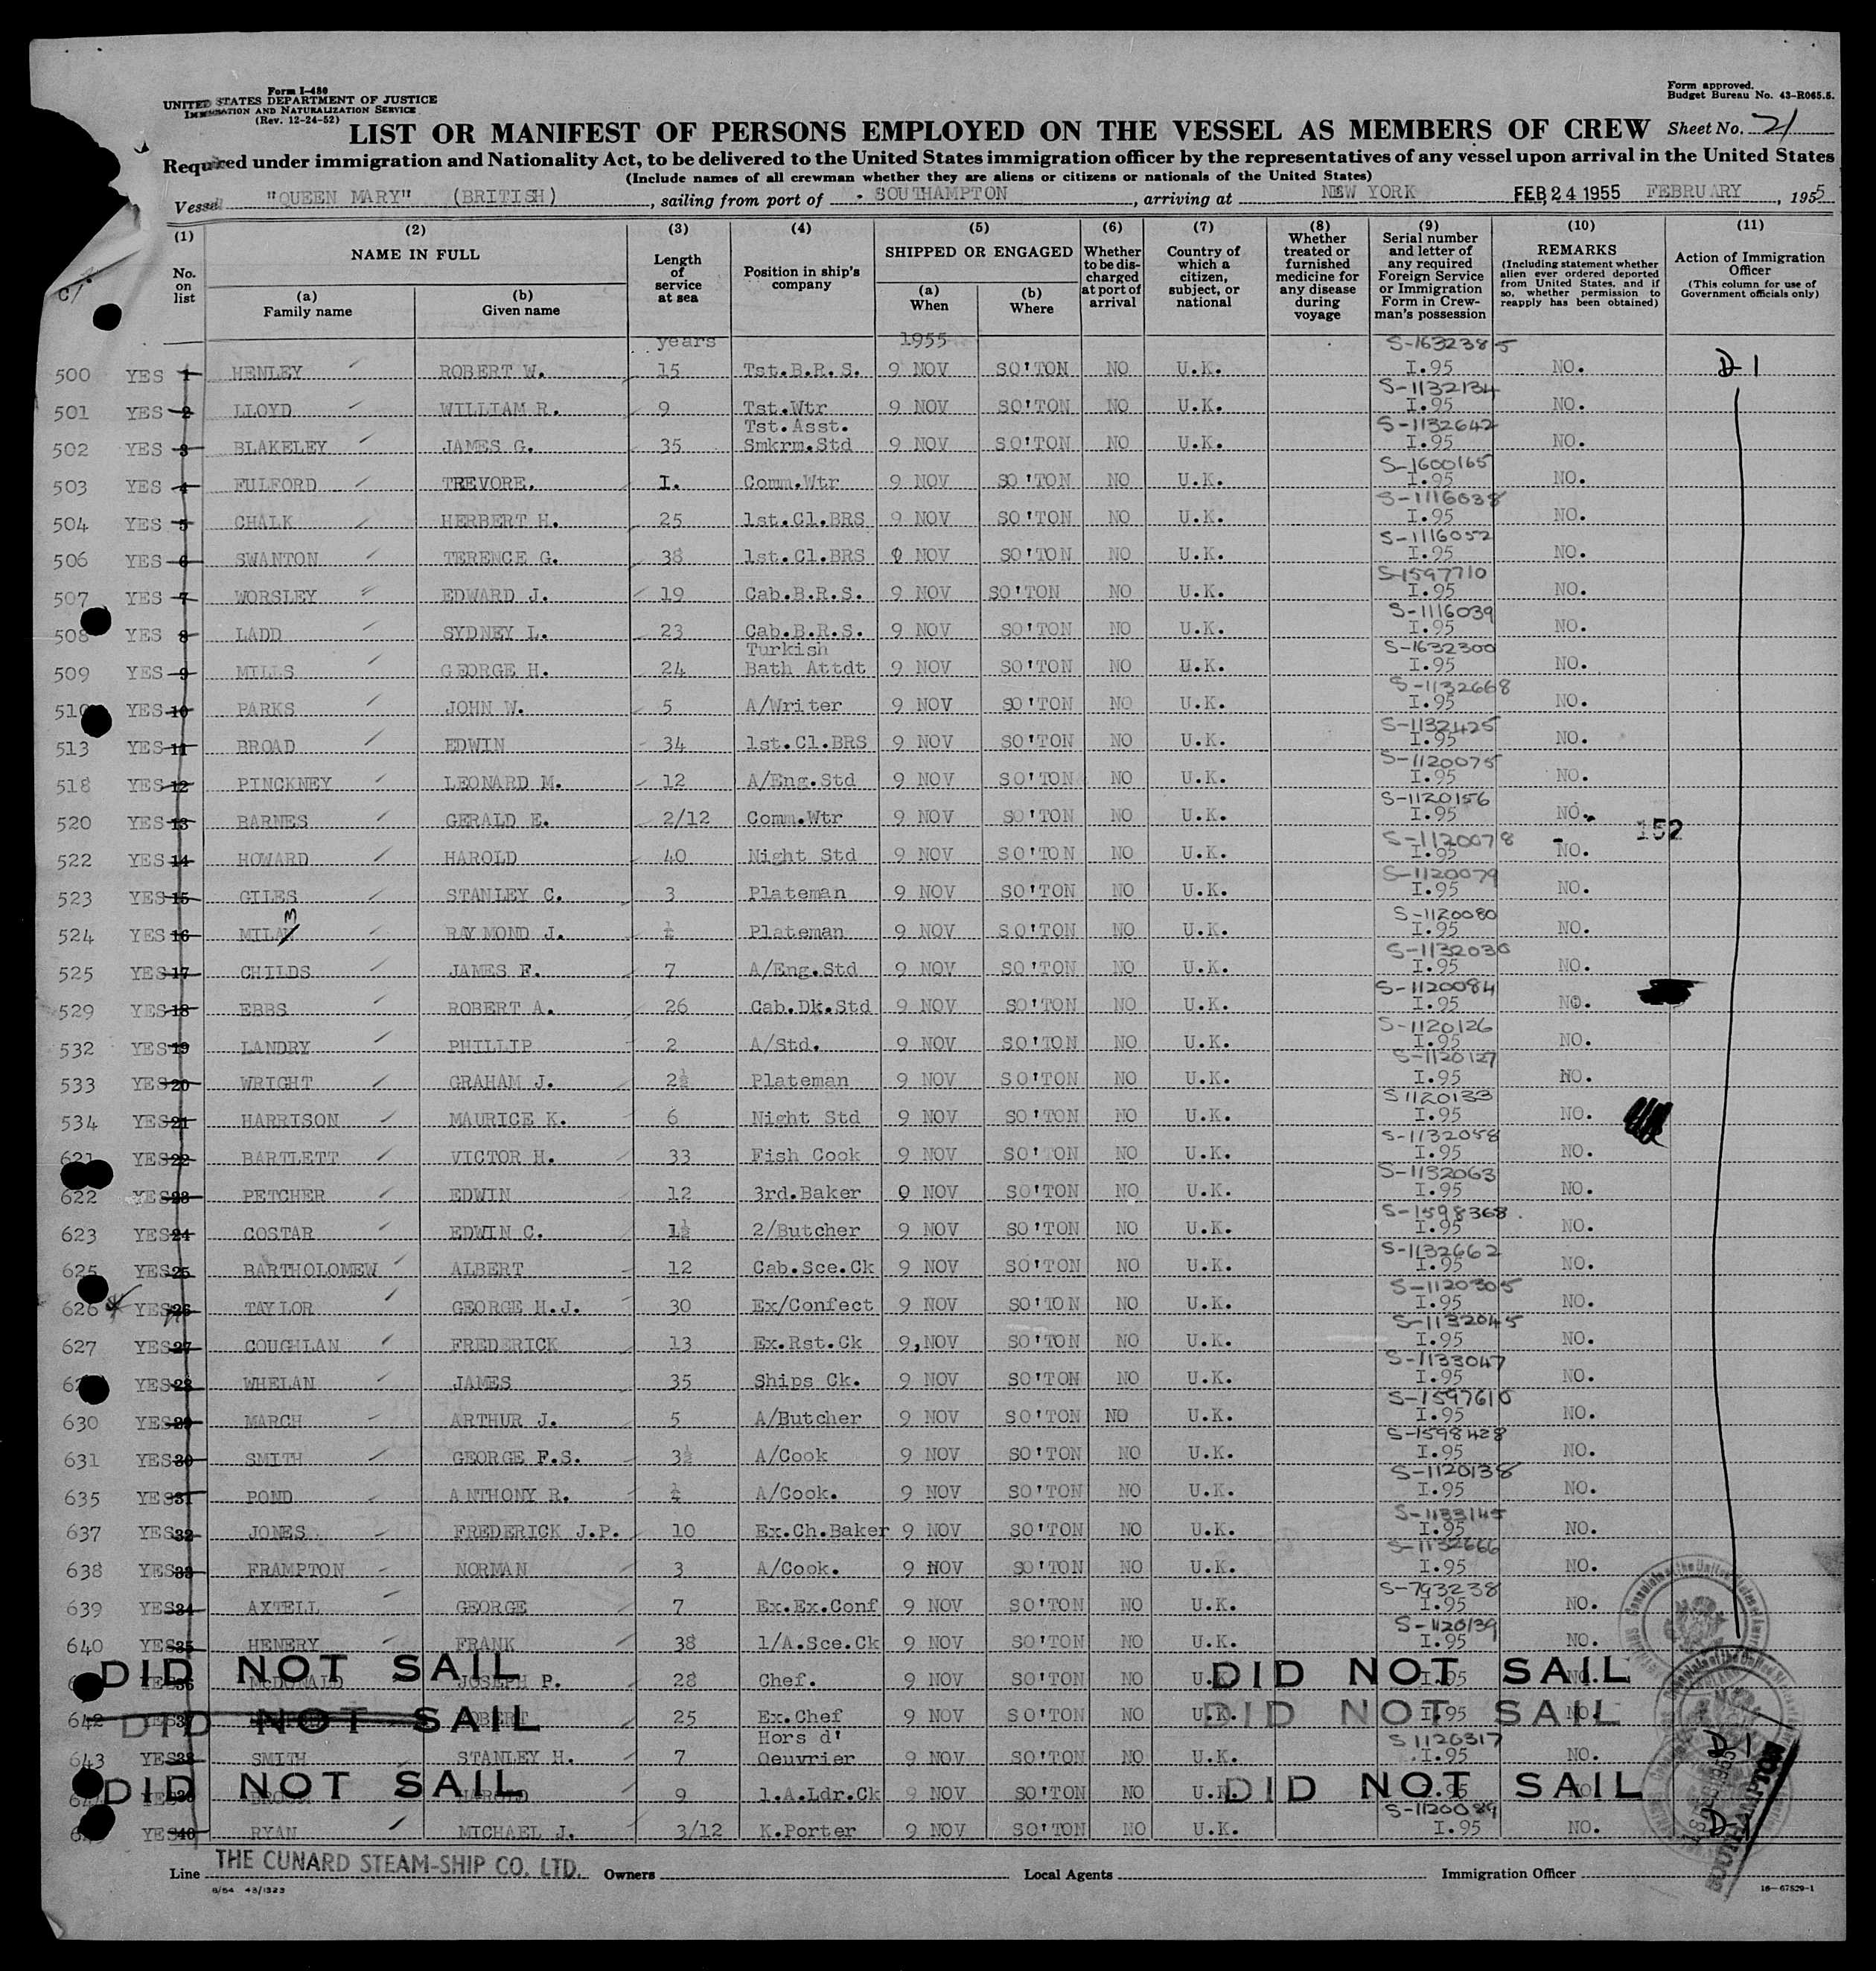 Form I-480
UNITED STATES DEPARTMENT OF JUSTICE
IMMIGRATION AND NATURALIZATION SERVICE
(Rev. 12-24-52)
Form approved.
Budget Bureau No. 43-R065.5.
LIST OR MANIFEST OF PERSONS EMPLOYED ON THE VESSEL AS MEMBERS OF CREW Sheet No. 21
Required under immigration and Nationality Act, to be delivered to the United States immigration officer by the representatives of any vessel upon arrival in the United States
(Include names of all crewman whether they are aliens or citizens or nationals of the United States)
Vessel "QUEEN MARY" (BRITISH), sailing from port of SOUTHAMPTON, arriving at NEW YORK FEB 24 1955 FEBRUARY, 1955
(1) No. on list
(2) NAME IN FULL
(a) Family name
(b) Given name
(3) Length of service at sea
(4) Position in ship's company
(5) SHIPPED OR ENGAGED
(a) When
(b) Where
(6) Whether to be discharged at port of arrival
(7) Country of which a citizen, subject, or national
(8) Whether treated or furnished medicine for any disease during voyage
(9) Serial number and letter of any required Foreign Service or Immigration Form in Crewman's possession
(10) REMARKS (Including statement whether alien ever ordered deported from United States, and if so, whether permission to reapply has been obtained)
(11) Action of Immigration Officer (This column for use of Government officials only)
years 1955
500 YES 1 HENLEY ROBERT W. 15 Tst.B.R.S. 9 NOV SO'TON NO U.K. S-1632385 I.95 NO. D-1
501 YES 2 LLOYD WILLIAM R. 9 Tst.Wtr 9 NOV SO'TON NO U.K. S-1132134 I.95 NO.
502 YES 3 BLAKELEY JAMES G. 35 Tst.Asst. Smkrm.Std 9 NOV SO'TON NO U.K. S-1132642 I.95 NO.
503 YES 4 FULFORD TREVORE. I. Comm.Wtr 9 NOV SO'TON NO U.K. S-1600165 I.95 NO.
504 YES 5 CHALK HERBERT H. 25 1st.Cl.BRS 9 NOV SO'TON NO U.K. S-1116038 I.95 NO.
506 YES 6 SWANTON TERENCE G. 38 1st.Cl.BRS 9 NOV SO'TON NO U.K. S-1116052 I.95 NO.
507 YES 7 WORSLEY EDWARD J. 19 Cab.B.R.S. 9 NOV SO'TON NO U.K. S-1597710 I.95 NO.
508 YES 8 LADD SYDNEY L. 23 Cab.B.R.S. 9 NOV SO'TON NO U.K. S-1116039 I.95 NO.
509 YES 9 MILLS GEORGE H. 24 Turkish Bath Attdt 9 NOV SO'TON NO U.K. S-1632300 I.95 NO.
510 YES 10 PARKS JOHN W. 5 A/Writer 9 NOV SO'TON NO U.K. S-1132668 I.95 NO.
513 YES 11 BROAD EDWIN 34 1st.Cl.BRS 9 NOV SO'TON NO U.K. S-1132425 I.95 NO.
518 YES 12 PINCKNEY LEONARD M. 12 A/Eng.Std 9 NOV SO'TON NO U.K. S-1120075 I.95 NO.
520 YES 13 BARNES GERALD E. 2/12 Comm.Wtr 9 NOV SO'TON NO U.K. S-1120156 I.95 NO. 152
522 YES 14 HOWARD HAROLD 40 Night Std 9 NOV SO'TON NO U.K. S-1120078 I.95 NO.
523 YES 15 GILES STANLEY C. 3 Plateman 9 NOV SO'TON NO U.K. S-1120079 I.95 NO.
524 YES 16 MILAM RAYMOND J. Plateman 9 NOV SO'TON NO U.K. S-1120080 I.95 NO.
525 YES 17 CHILDS JAMES F. 7 A/Eng.Std 9 NOV SO'TON NO U.K. S-1132030 I.95 NO.
529 YES 18 EBBS ROBERT A. 26 Cab.Dk.Std 9 NOV SO'TON NO U.K. S-1120084 I.95 NO.
532 YES 19 LANDRY PHILLIP 2 A/Std. 9 NOV SO'TON NO U.K. S-1120126 I.95 NO.
533 YES 20 WRIGHT GRAHAM J. 2½ Plateman 9 NOV SO'TON NO U.K. S-1120127 I.95 NO.
534 YES 21 HARRISON MAURICE K. 6 Night Std 9 NOV SO'TON NO U.K. S1120133 I.95 NO.
621 YES 22 BARTLETT VICTOR H. 33 Fish Cook 9 NOV SO'TON NO U.K. S-1132058 I.95 NO.
622 YES 23 PETCHER EDWIN 12 3rd.Baker 9 NOV SO'TON NO U.K. S-1132063 I.95 NO.
623 YES 24 COSTAR EDWIN C. 1½ 2/Butcher 9 NOV SO'TON NO U.K. S-1598368 I.95 NO.
625 YES 25 BARTHOLOMEW ALBERT 12 Cab.Sce.Ck 9 NOV SO'TON NO U.K. S-1132662 I.95 NO.
626 YES 26 TAYLOR GEORGE H.J. 30 Ex/Confect 9 NOV SO'TON NO U.K. S-1120305 I.95 NO.
627 YES 27 COUGHLAN FREDERICK 13 Ex.Rst.Ck 9 NOV SO'TON NO U.K. S-1132045 I.95 NO.
YES 28 WHELAN JAMES 35 Ships Ck. 9 NOV SO'TON NO U.K. S-1133047 I.95 NO.
630 YES 29 MARCH ARTHUR J. 5 A/Butcher 9 NOV SO'TON NO U.K. S-1597610 I.95 NO.
631 YES 30 SMITH GEORGE F.S. 3½ A/Cook 9 NOV SO'TON NO U.K. S-1598428 I.95 NO.
635 YES 31 POND ANTHONY R. A/Cook. 9 NOV SO'TON NO U.K. S-1120138 I.95 NO.
637 YES 32 JONES FREDERICK J.P. 10 Ex.Ch.Baker 9 NOV SO'TON NO U.K. S-1133145 I.95 NO.
638 YES 33 FRAMPTON NORMAN 3 A/Cook. 9 NOV SO'TON NO U.K. S-1132666 I.95 NO.
639 YES 34 AXTELL GEORGE 7 Ex.Ex.Conf 9 NOV SO'TON NO U.K. S-793238 I.95 NO.
640 YES 35 HENERY FRANK 38 1/A.Sce.Ck 9 NOV SO'TON NO U.K. S-1120139 I.95 NO.
YES 36 McDONALD JOSEPH P. 28 Chef. 9 NOV SO'TON NO U.K. I.95 NO. DID NOT SAIL DID NOT SAIL
642 YES 37 ROBERT 25 Ex.Chef 9 NOV SO'TON NO U.K. I.95 NO. DID NOT SAIL DID NOT SAIL
643 YES 38 SMITH STANLEY H. 7 Hors d' Oeuvrier 9 NOV SO'TON NO U.K. S1120317 I.95 NO. D-1
YES 39 HAROLD 9 1.A.Ldr.Ck 9 NOV SO'TON NO U.K. I.95 NO. DID NOT SAIL DID NOT SAIL
YES 40 RYAN MICHAEL J. 3/12 K.Porter 9 NOV SO'TON NO U.K. S-1120089 I.95 NO. D-1
SOUTHAMPTON
Line THE CUNARD STEAM-SHIP CO. LTD. Owners Local Agents Immigration Officer
8/54 43/1323
16-67529-1